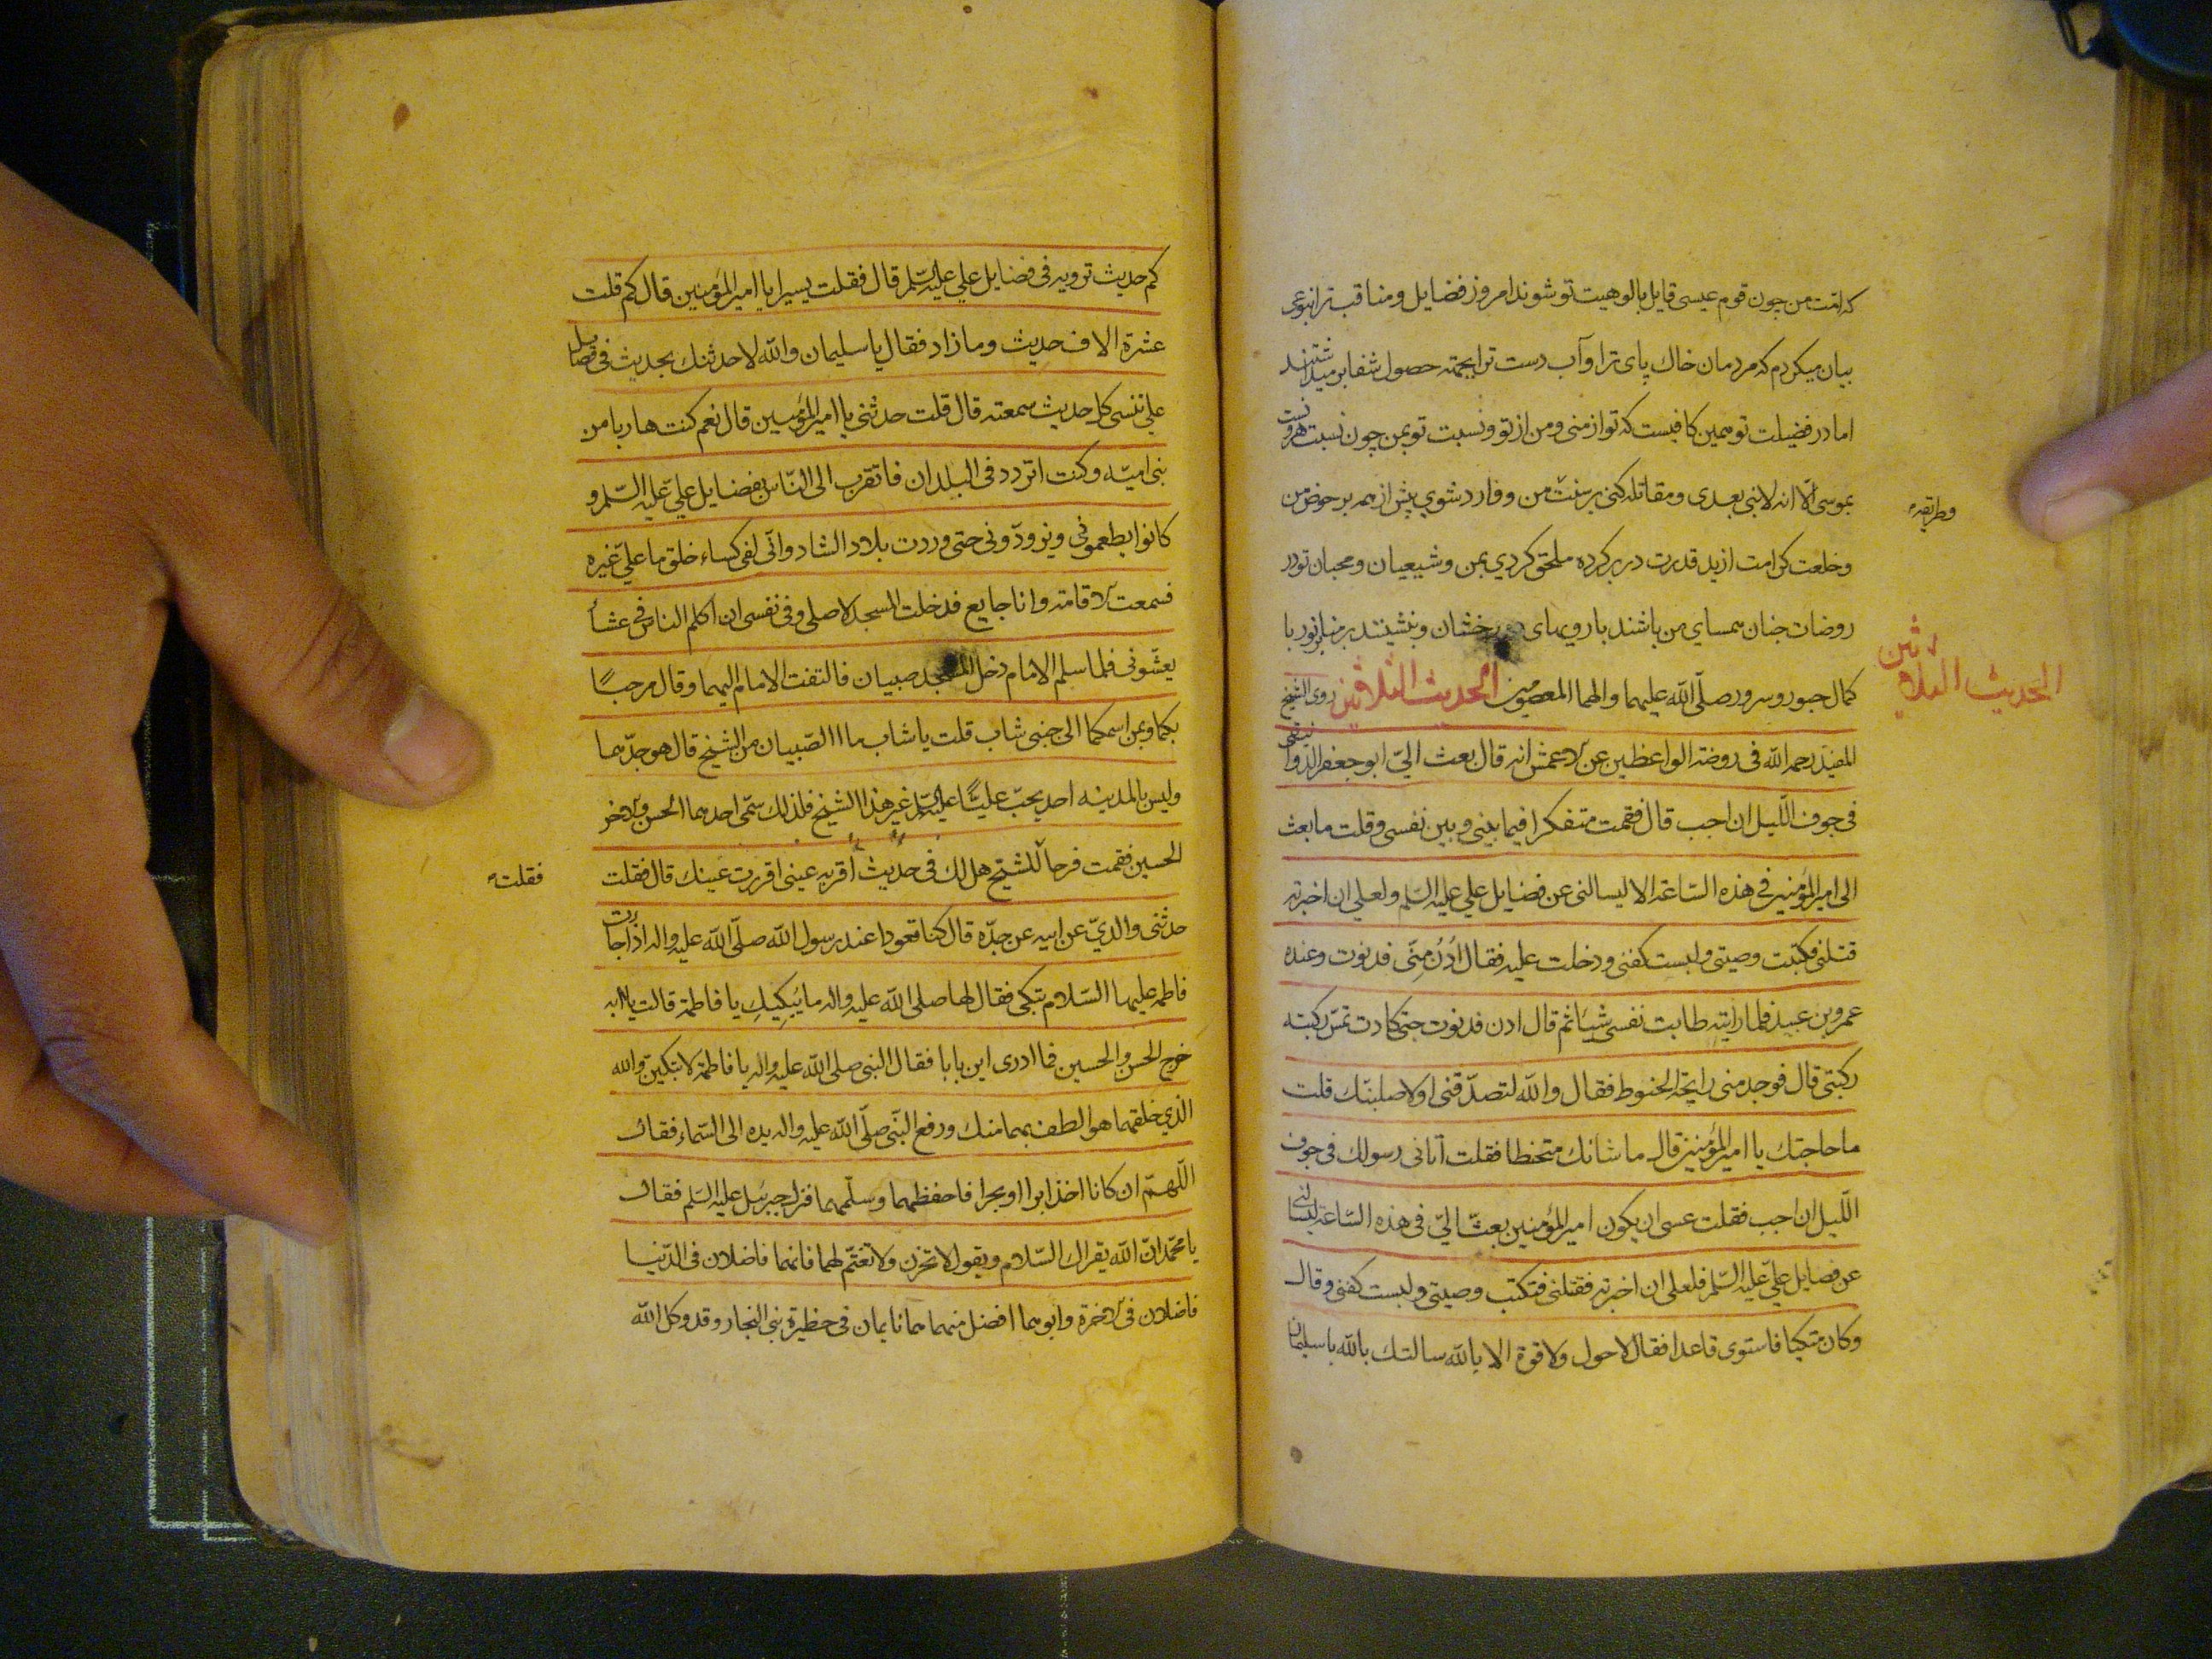 که امّت من چون قوم عیسی قایل بالوهیت تو شوند امروز فضایل و مناقب ترا بنوعی
بیان میکردم که مردمان خاک پای ترا و آب دست ترا بجهته حصول شفا برمیداشتند
اما در فضیلت تو همین کافیست که تو از منی و من از تو و نسبت تو بمن چون نسبت هرونست
بموسی الّا انه لا نبی بعدی و مقاتله کنی بر سنّت من و وارد شوی پیش از همه بر حوض من
وطریقه
و خلعت کرامت از ید قدرت در بر کرده ملحق کردی بمن و شیعیان و محبان تو در
روضات جنان همسای من باشند با رویهای درخشان و بنشینند بر منابر نور با
کمال حبور و سرور صلّی الله علیهما والهما المعصومین الحدیث الثلاثین روی الشیخ
الحدیث الثلاثین
المفید رحمه الله فی روضة الواعظین عن الاعمش انه قال بعث الیّ ابو جعفر الدوانیقی
فی جوف اللّیل ان اجب قال فقمت متفکرا فیما بینی و بین نفسی و قلت ما بعث
الی امیر المؤمنین فی هذه السّاعة الا لیسالنی عن فضایل علی علیه السّلم و لعلی ان اخبرته
قتلنی فکتبت وصیتی و لبست کفنی و دخلت علیه فقال اُدْنُ مِنّی فدنوت و عنده
عمرو بن عبید فلما رایته طابت نفسی شیئا ثم قال ادن فدنوت حتی کادت تمسّ رکبته
رکبتی قال فوجد منی رایحة الحنوط فقال والله لتصدّقنی او لاصلبنّک قلت
ما حاجتک یا امیر المؤمنین قال ما شانک متحنطا فقلت اتانی رسولک فی جوف
اللّیل ان اجب فقلت عسی ان یکون امیر المؤمنین بعث الیّ فی هذه السّاعة لیسالنی
عن فضایل علیّ علیه السّلم فلعلی ان اخبرته فقتلنی فتکتب وصیتی و لبست کفنی و قال
و کان متکیا فاستوی قاعدا فقال لا حول و لا قوة الا بالله سالتک بالله یا سلیمان
کم حدیث ترویه فی فضایل علی علیه السّلم قال فقلت یسیرا یا امیر المؤمنین قال کم قلت
عشرة الاف حدیث و ما زاد فقال یا سلیمان والله لاحدثنک بحدیث فی فضایل
علی تنسی کل حدیث سمعته قال قلت حدثنی یا امیر المؤمنین قال نعم کنت هاربا من
بنی امیّه و کنت اتردد فی البلدان فاتقرب الی النّاس بفضایل علیّ علیه السّلم و
کانوا یطعمونی و یزوّدونی حتی وردت بلاد الشاد وانّی لفی کساء خلق ما علیّ غیره
فسمعت الاقامة و انا جایع فدخلت المسجد لاصلی و فی نفسی ان اکلم الناس فی عشآ
یعشّونی فلما سلم الامام دخل المسجد صبیان فالتفت الامام الیهما و قال مرحبًا
بکما و بمن اسمکما الی جنبی شاب قلت یا شاب ما الصّبیان من الشیخ قال هو جدّهما
و لیس بالمدینه احد یحبّ علیًّا علیه السّلم غیر هذا الشیخ فلذلک سمّی احدهما الحسن والاخر
الحسین فقمت فرحا للشیخ هل لک فی حدیث اقربه عینی اقررت عینک قال فقلت
فقلت
حدثنی والدیّ عن ابیه عن جدّه قال کنا قعودا عند رسول الله صلّی الله علیه واله اذا جاءت
فاطمه علیها السّلام تبکی فقال لها صلی الله علیه واله ما یُبکِیکِ یا فاطمة قالت یا ابه
خرج الحسن والحسین فما ادری این باتا فقال النبی صلی الله علیه واله یا فاطمة لا تبکین والله
الذی خلقهما هو الطف بهما منک و رفع النّبی صلّی الله علیه واله یده الی السّماء فقال
اللّهمّ ان کانا اخذا برا او بحرا فاحفظهما و سلّمهما فنزل جبرئیل علیه السّلم فقال
یا محمّد انّ الله یقراک السّلام و یقول لا تحزن و لا تغتمّ لهما فانهما فاضلان فی الدّنیا
فاضلان فی الاخرة و ابوهما افضل منهما هما نایمان فی حظیرة بنی النجار و قد وکل الله